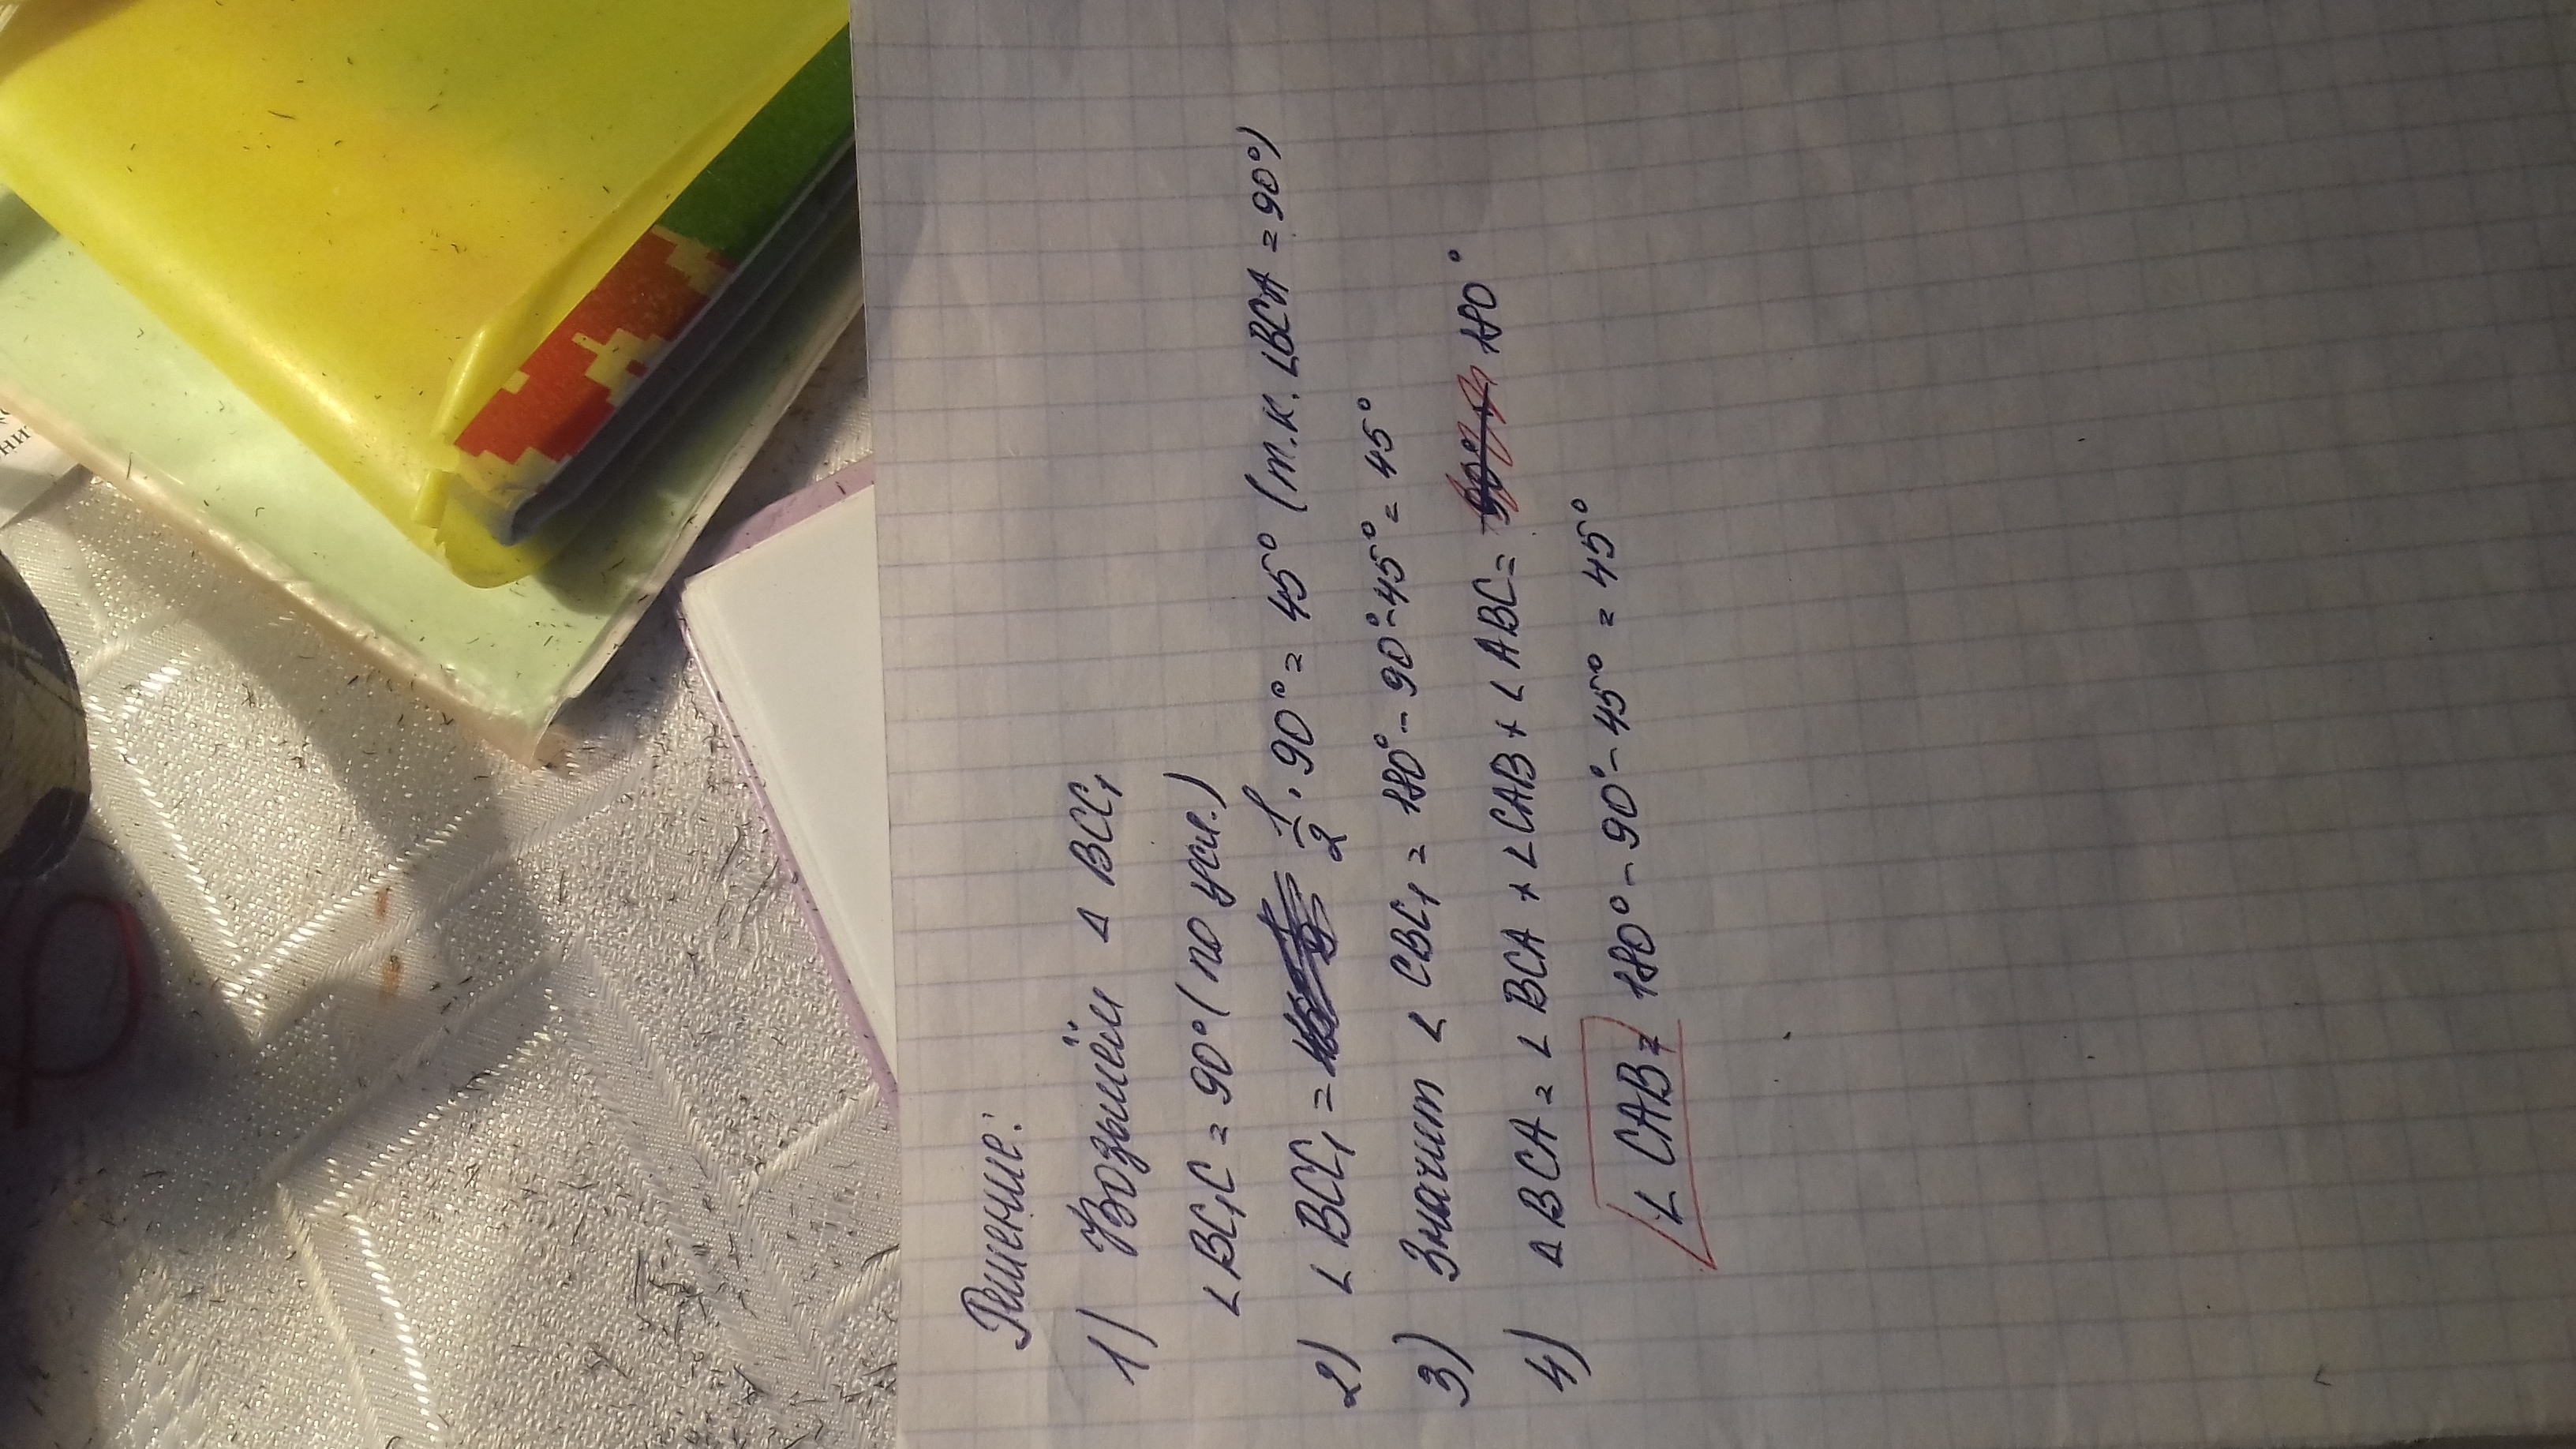 Решение:
1) Возьмём Δ BCC₁
∠BC₁C = 90° (по усл.)
2) ∠ BCC₁ = 1/2 · 90° = 45° (т.к. ∠BCA = 90°)
3) Значит ∠ CBC₁ = 180° - 90° - 45° = 45°
4) Δ BCA = ∠ BCA + ∠CAB + ∠ ABC = 180°
∠ CAB = 180° - 90° - 45° = 45°